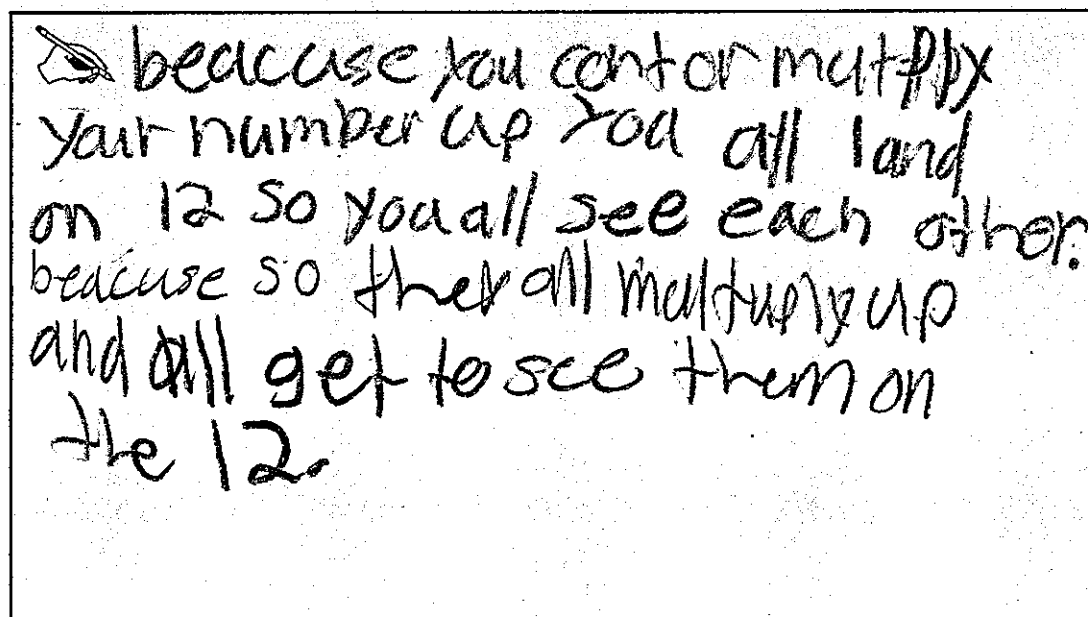 beacuse you contor mutpply
your number up you all land
on 12 so you all see each other.
beacuse so they all multuply up
and all get to see them on
the 12.